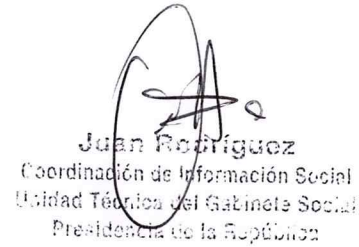 Juan Rodríguez
Coordinación de Información Social
Unidad Técnica del Gabinete Social
Presidencia de la República